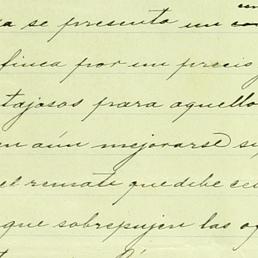 a se presenta un co
finca por un precio
tajosos para aquello
en aún mejorarse si
el remate que debe ce
que sobrepujen las o